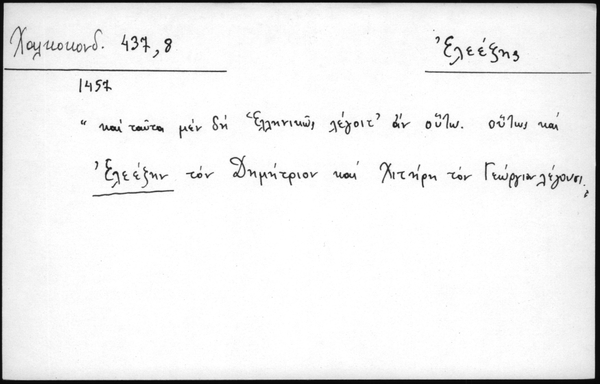 Χαλκοκονδ. 437,8
Ἐλεέζης
1457
"καὶ ταῦτα μέν δή Ἑλληνικῶς λέγοιτ' ἄν οὕτω. οὕτως καί
Ἐλεέζην τόν Δημήτριον καί Χιτήρη τόν Γεώργιον λέγουσι.